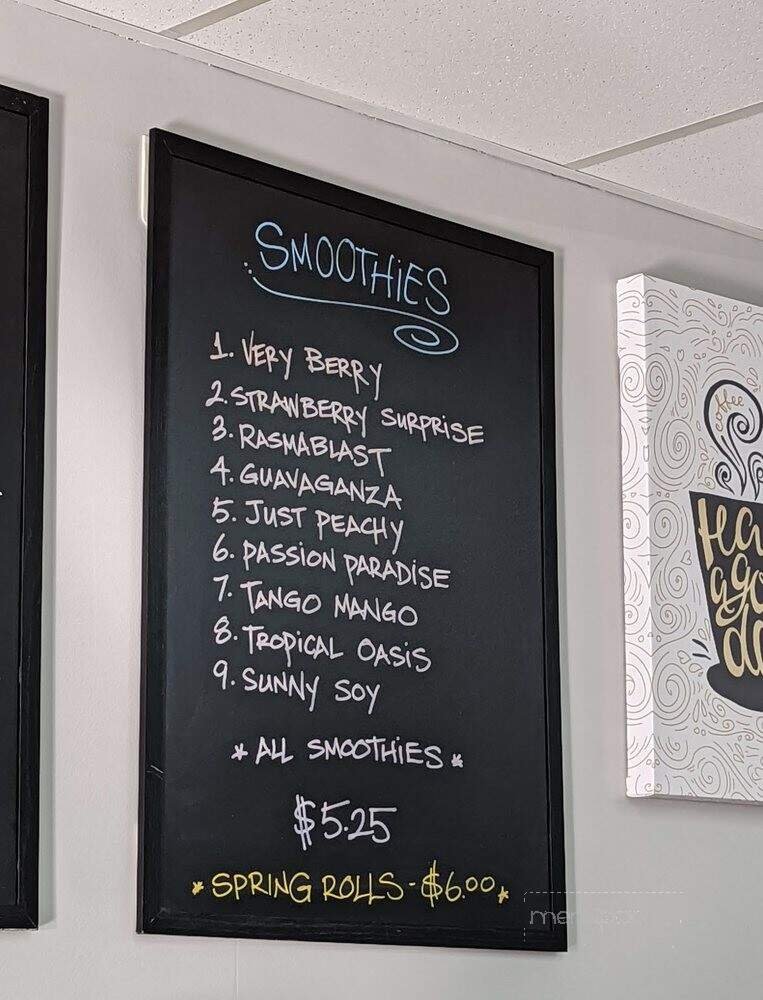 SMOOTHiES
1. VERY BERRY
2. STRAWBERRY SURPRISE
3. RASMABLAST
4. GUAVAGANZA
5. JUST PEACHY
6. PASSION PARADISE
7. TANGO MANGO
8. TROPICAL OASIS
9. SUNNY SOY
* ALL SMOOTHIES *
$5.25
* SPRING ROLLS - $6.00 *
coffee